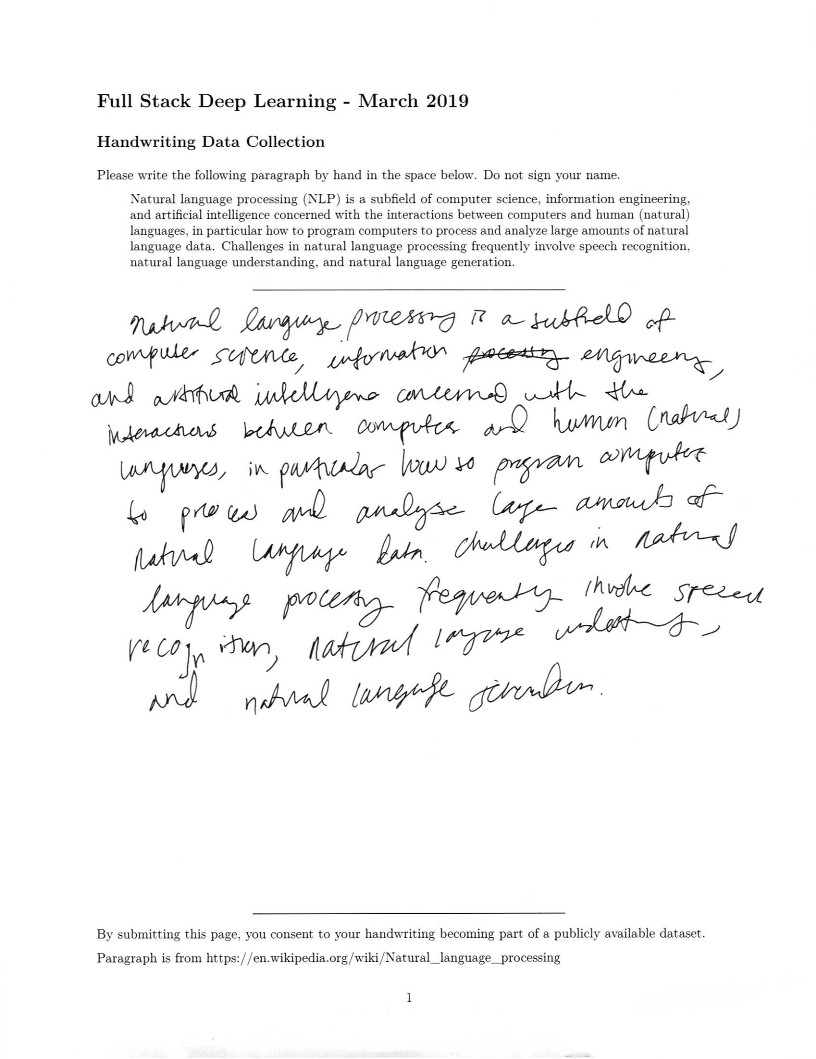 Full Stack Deep Learning - March 2019
Handwriting Data Collection
Please write the following paragraph by hand in the space below. Do not sign your name.
Natural language processing (NLP) is a subfield of computer science, information engineering,
and artificial intelligence concerned with the interactions between computers and human (natural)
languages, in particular how to program computers to process and analyze large amounts of natural
language data. Challenges in natural language processing frequently involve speech recognition,
natural language understanding, and natural language generation.
Natural language processing is a subfield of
computer science, information processing engineering,
and artificial intelligence concerned with the
interactions between computers and human (natural)
languages, in particular how to program computer
to process and analyse large amounts of
natural language data. Challenges in natural
language processing frequently involve speech
recognition, natural language understanding,
and natural language generation.
By submitting this page, you consent to your handwriting becoming part of a publicly available dataset.
Paragraph is from https://en.wikipedia.org/wiki/Natural_language_processing
1